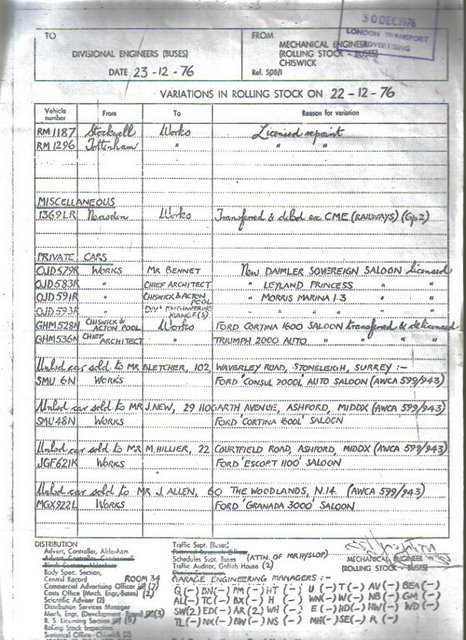 30 DEC 1976
LONDON TRANSPORT
ADVERTISING
TO
DIVISIONAL ENGINEERS (BUSES)
DATE 23-12-76
FROM
MECHANICAL ENGINEER
(ROLLING STOCK - BUSES)
CHISWICK
Ref. 508/1
VARIATIONS IN ROLLING STOCK ON 22-12-76
Vehicle number From To Reason for variation
RM 1187 Stockwell Works Licensed repaint
RM 1296 Tottenham " " "
MISCELLANEOUS
1369LR Neasden Works Transferred & delcsd ex CME (RAILWAYS) (Gp 2)
PRIVATE CARS
OJD 579R WORKS MR BENNET New DAIMLER SOVEREIGN SALOON licensed
OJD 583R " CHIEF ARCHITECT " LEYLAND PRINCESS " "
OJD 591R " CHISWICK & ACTON POOL " MORRIS MARINA 1.3 " "
OJD 593R " DIV'L ENGINEERING MANGR(S) " " " " "
GHM 528N CHISWICK & ACTON POOL Works FORD CORTINA 1600 SALOON transferred & delicensed
GHM 536N CHIEF ARCHITECT " TRIUMPH 2000 AUTO " " "
Unlcd car sold to MR BLETCHER, 102, WAVERLEY ROAD, STONELEIGH, SURREY :-
SMU 6N WORKS FORD 'CONSUL 2000L' AUTO SALOON (AWCA 599/943)
Unlcd car sold to MR J. NEW, 29 HOGARTH AVENUE, ASHFORD, MIDDX (AWCA 599/943)
SMU 48N WORKS FORD 'CORTINA 1600L' SALOON
Unlcd car sold to MR M. HILLIER, 22 COURTFIELD ROAD, ASHFORD, MIDDX (AWCA 599/943)
JGF 621K WORKS FORD 'ESCORT 1100' SALOON
Unlcd car sold to MR J. ALLEN, 60 THE WOODLANDS, N.14. (AWCA 599/943)
MGX 922L WORKS FORD 'GRANADA 3000' SALOON
DISTRIBUTION
Advert. Controller, Aldenham
Body Spec. Section,
Central Record ROOM 34
Commercial Advertising Officer
Costs Office (Mech. Engr.-Buses) (2)
Scientific Adviser (2)
Distribution Services Manager
Mech. Engr. Development (Buses) (3)
R. S. Licensing Section
Rolling Stock Inspection
Statistical Office - Chiswick (2)
Traffic Supt. (Buses)
Schedules Supt. (Buses) (ATTN. OF MR HYSLOP)
Traffic Auditor, Griffith House (2)
GARAGE ENGINEERING MANAGERS :-
MECHANICAL ENGINEER
(ROLLING STOCK - BUSES)
Q (-) BN (-) PM (-) HT (-) U (-) T (-) AV (-) BEA (-)